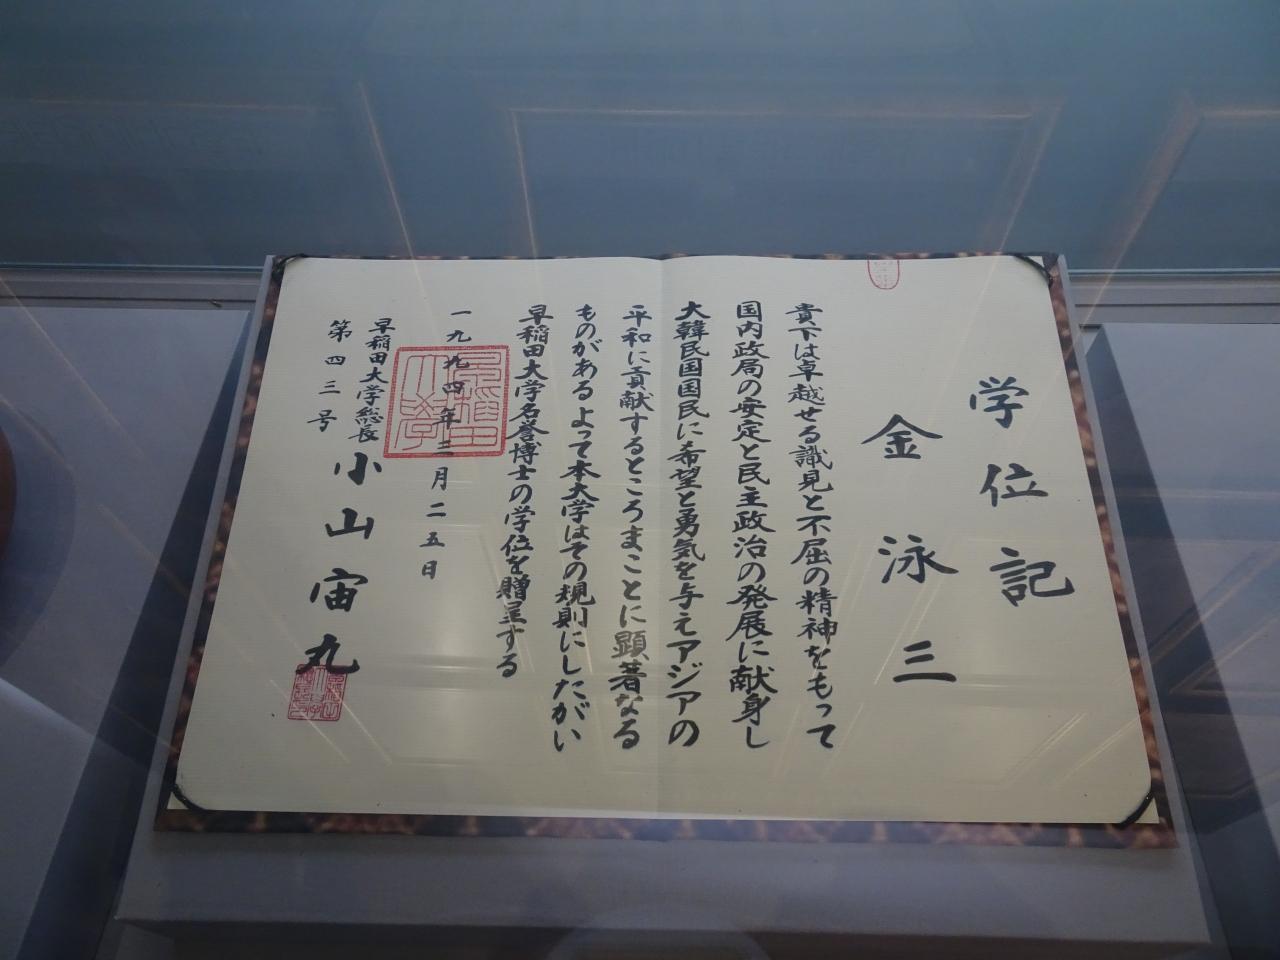 学位記
金泳三
貴下は卓越せる識見と不屈の精神をもって
国内政局の安定と民主政治の発展に献身し
大韓民国国民に希望と勇気を与えアジアの
平和に貢献するところまことに顕著なる
ものがあるよって本大学はその規則にしたがい
早稲田大学名誉博士の学位を贈呈する
一九九四年三月二五日
早稲田大学総長 小山宙丸
第四三号